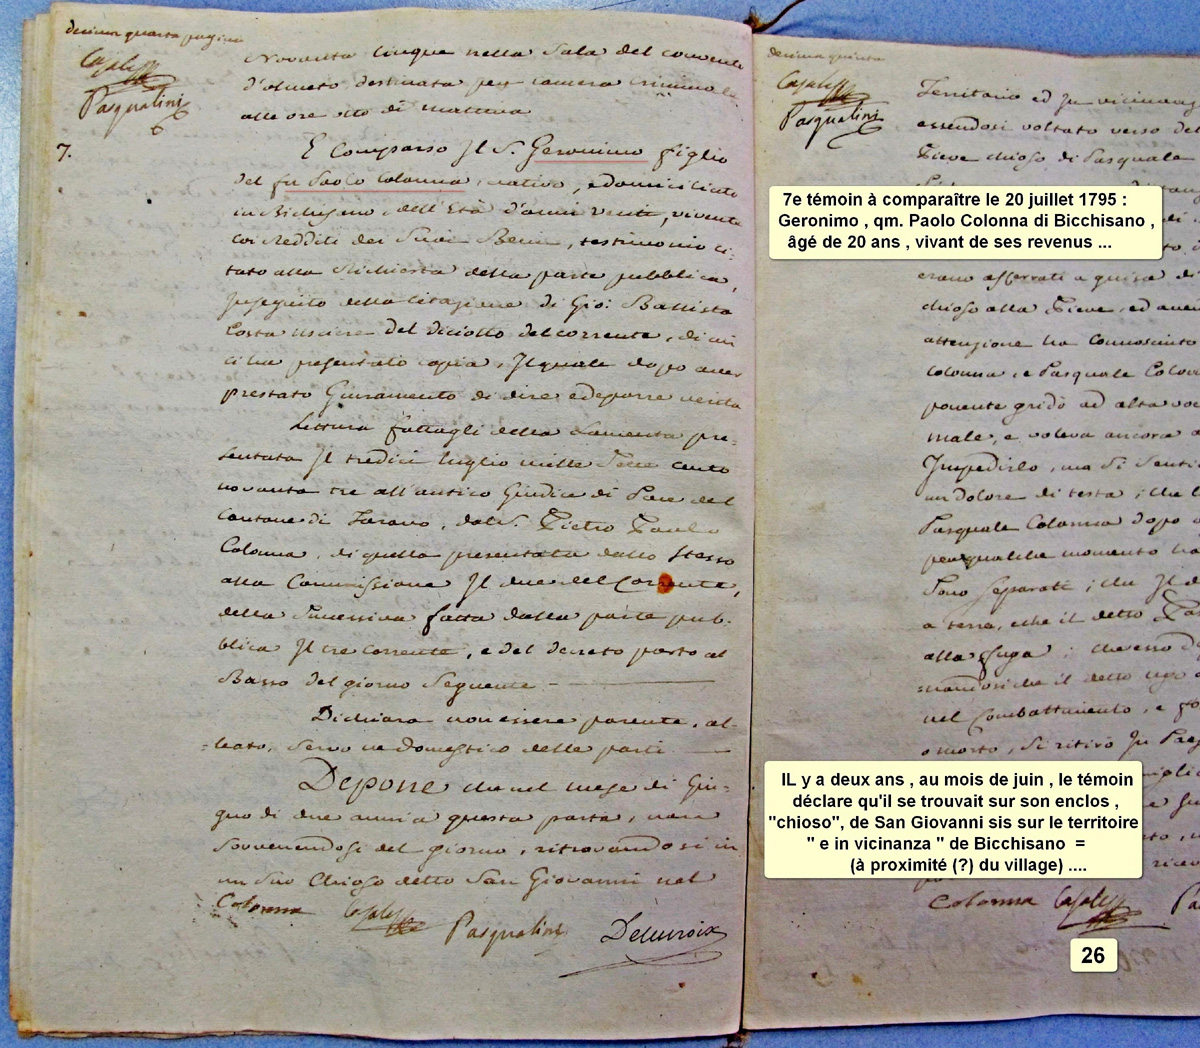 decima quarta pagina
Casalta
Pasqualini
Novanta Cinque nella Sala del convento
d'olmeto destinata per camera Criminale
alle ore otto di mattina
7.
È Comparso Il S. Geronimo figlio
del fu Paolo Colonna, nativo, e domiciliato
in Bichisano, dell'Età d'anni venti, vivente
coi Redditi dei Suoi Beni, testimonio ci-
tato alla Richiesta della parte pubblica,
In seguito della Citazione di Gio: Battista
Costa usciere del diciotto del corrente, di cui
ci ha presentato copia, Il quale dopo aver
prestato Giuramento di dire e deporre verità
Lettura fattagli della Lamenta pre-
sentata Il tredici luglio mille Sette cento
novanta tre all'antico Giudice di Pace del
Cantone di Taravo, dal S. Pietro Paulo
Colonna, di quella presentata dallo Stesso
alla Commissione Il due del Corrente,
della Successiva fatta dalla parte pub-
blica Il tre Corrente, e del decreto posto al
Basso del giorno Seguente
Dichiara non essere parente, al-
leato, Servo ne domestico delle parti
Depone che nel mese di Giu-
gno di due anni a questa parte, non
Sovvenendosi del giorno, ritrovandosi in
un Suo Chioso detto San Giovanni nel
Colonna Casalta Pasqualini Delacroix
decima quinta
Casalta
Pasqualini
Territorio ed In vicinanza
essendosi voltato verso del
Pieve chioso di Pasquale
7e témoin à comparaître le 20 juillet 1795 :
Geronimo , qm. Paolo Colonna di Bicchisano ,
âgé de 20 ans , vivant de ses revenus ...
erano afferrati a guisa di
chioso alla Pieve, ed aven
attenzione ha Connosciuto
Colonna, e Pasquale Colon
ponente gridò ad alta voce
male, e voleva ancora a
Impedirlo, ma Si Senti
un dolore di testa ; che
Pasquale Colonna dopo a
per qualche momento
Sono Separati ; che Il d
a terra, e che il detto Pas
alla fuga ; che esso
il detto Ugo
nel Combattimento, e fo
o morto, Si ritirò In
IL y a deux ans , au mois de juin , le témoin
déclare qu'il se trouvait sur son enclos ,
"chioso", de San Giovanni sis sur le territoire
" e in vicinanza " de Bicchisano =
(à proximité (?) du village) ....
Colonna Casalta Pa
26